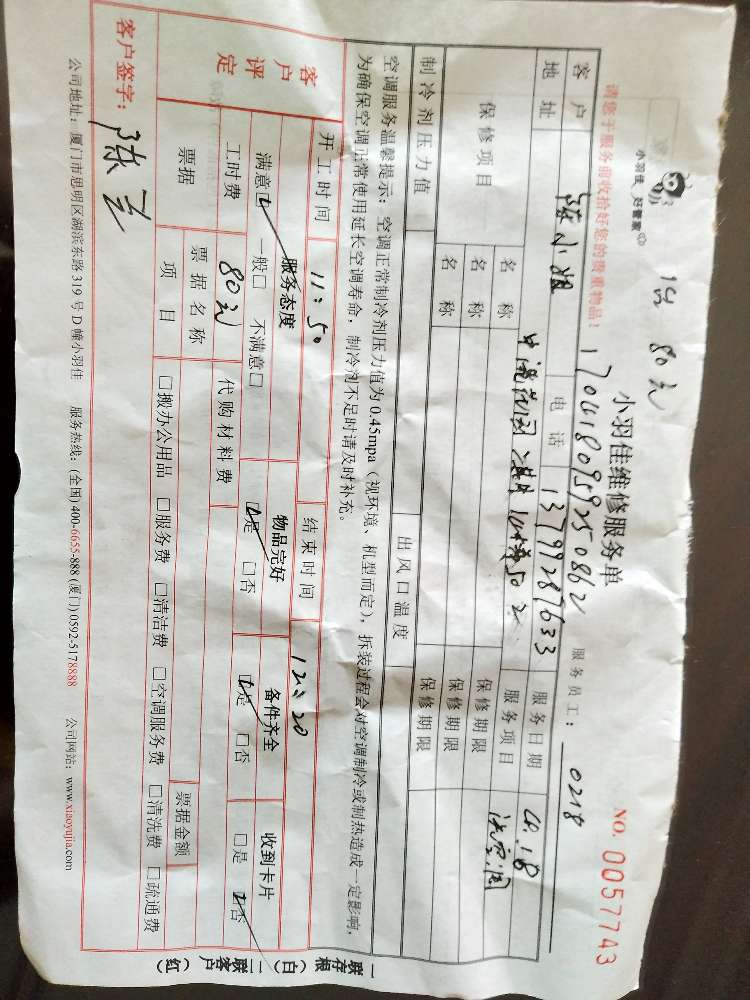 小羽佳 好管家
1台 80元
小羽佳维修服务单
NO. 0057743
请您于服务前收拾好您的贵重物品!
服务员工: 0218
客户 陈小姐 电话 13799287633 服务日期
地址 服务项目 洗空调
保修项目 名称 保修期限
名称 保修期限
名称 保修期限
制冷剂压力值 出风口温度
空调服务温馨提示:空调正常制冷剂压力值为0.45mpa(视环境、机型而定),拆装过程会对空调制冷或制热造成一定影响,
为确保空调正常使用延长空调寿命,制冷剂不足时请及时补充。
开工时间 11:50 结束时间 12:20
客户评定 服务态度 物品完好 备件齐全 收到卡片
满意□ 一般□ 不满意□ □是 □否 □是 □否 □是 □否
工时费 80元 代购材料费
票据 票据名称 票据金额
项目 □搬办公用品 □服务费 □清洁费 □空调服务费 □清洗费 □疏通费
客户签字: 陈
公司地址:厦门市思明区湖滨东路319号D幢小羽佳 服务热线:(全国)400-6655-888 (厦门)0592-5178888 公司网站:www.xiaoyujia.com
一联存根(白) 二联客户(红)